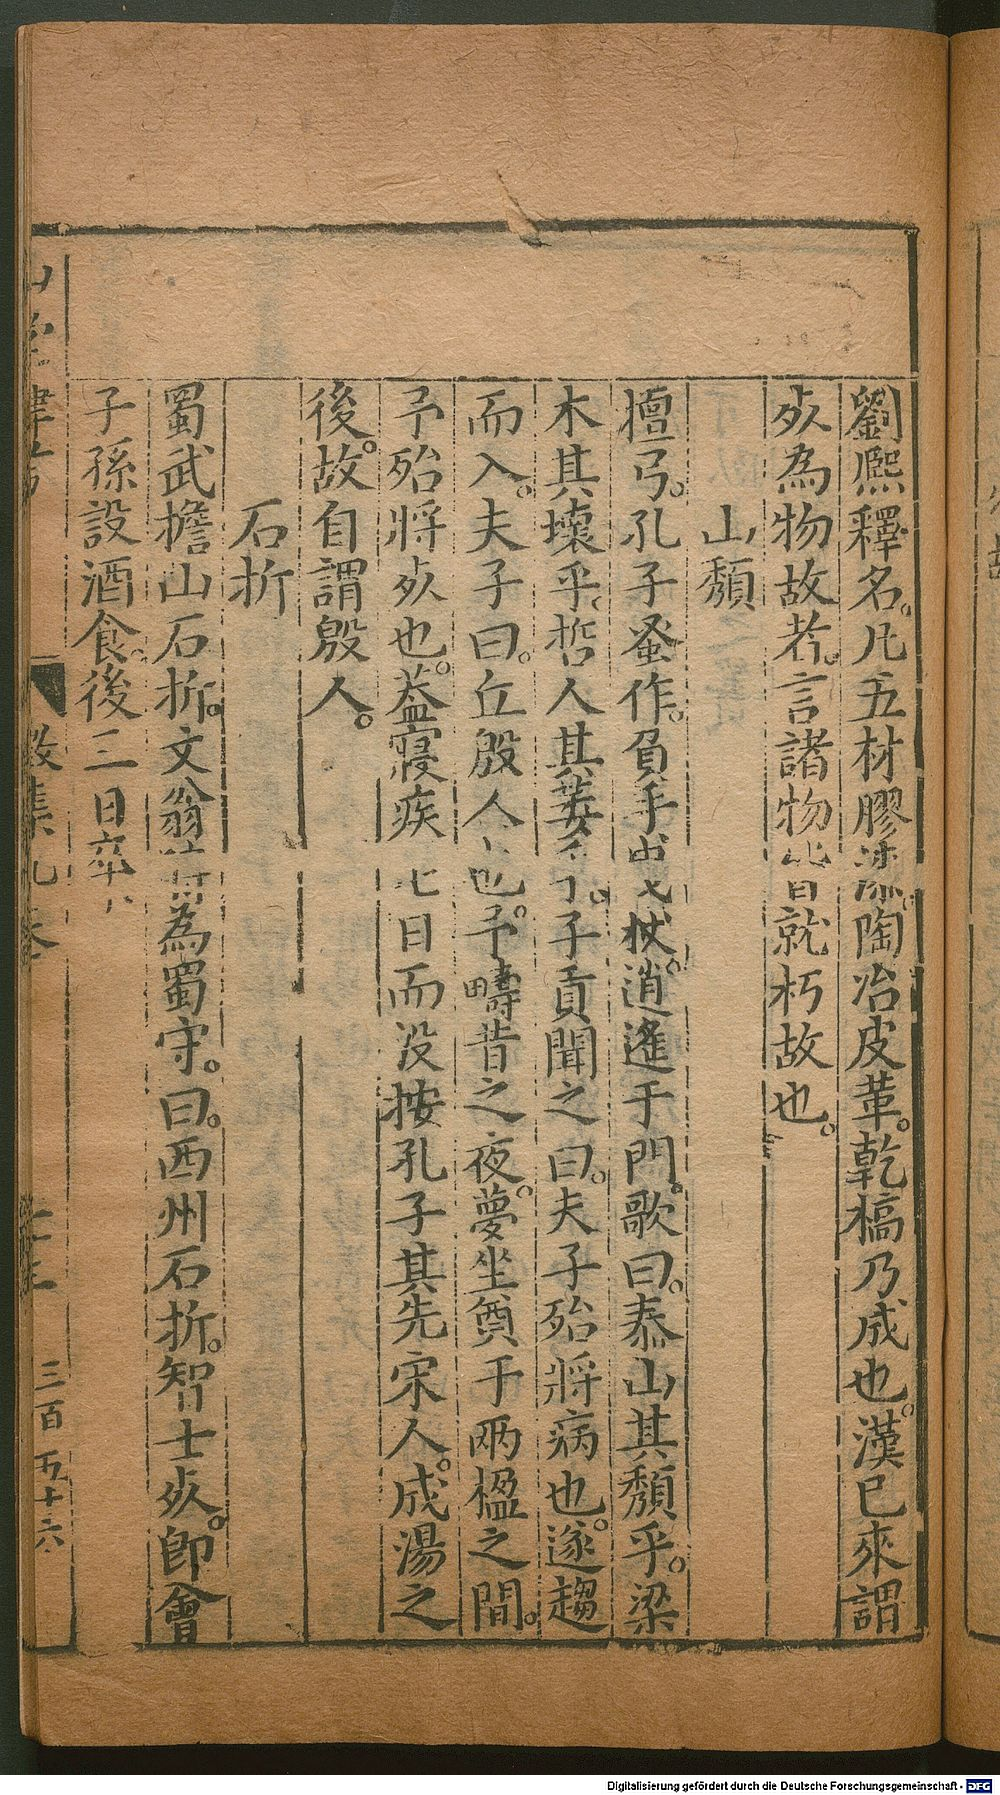 劉熈釋名。凡五材膠漆陶冶皮革。乾槁乃成也。漢已來謂
歿為物故者。言諸物皆就朽故也。
山頹
檀弓。孔子蚤作。負手曳杖。逍遙于門。歌曰。泰山其頹乎。梁
木其壞乎。哲人其萎乎。子貢聞之曰。夫子殆將病也。遂趨
而入。夫子曰。丘殷人也。予疇昔之夜。夢坐奠于兩楹之間。
予殆將歿也。葢寢疾七日而沒按孔子其先宋人。成湯之
後。故自謂殷人。
石折
蜀武擔山石折。文翁為蜀守。曰。西州石折。智士歿。即會
子孫設酒食。後三日卒
三百五十六
Digitalisierung gefördert durch die Deutsche Forschungsgemeinschaft - DFG